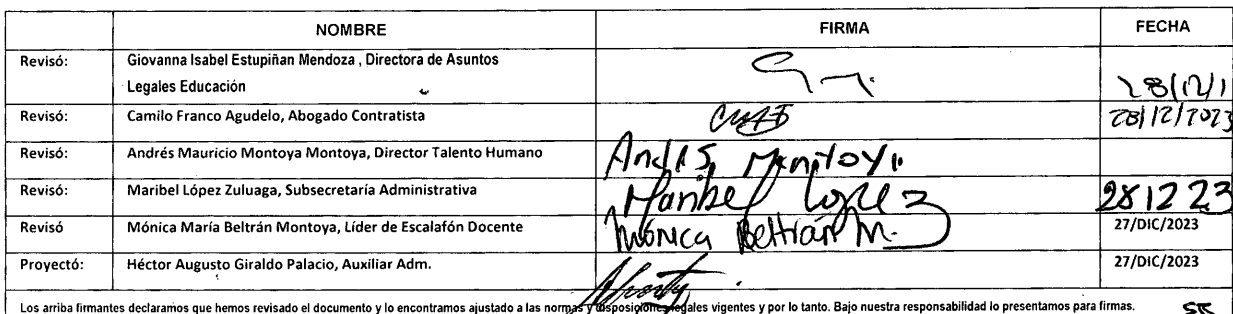 NOMBRE FIRMA FECHA
Revisó: Giovanna Isabel Estupiñan Mendoza , Directora de Asuntos
Legales Educación 28/12/
Revisó: Camilo Franco Agudelo, Abogado Contratista 28/12/2023
Revisó: Andrés Mauricio Montoya Montoya, Director Talento Humano Andrés Montoya
Revisó: Maribel López Zuluaga, Subsecretaría Administrativa Maribel López 281223
Revisó Mónica María Beltrán Montoya, Líder de Escalafón Docente Mónica Beltrán M. 27/DIC/2023
Proyectó: Héctor Augusto Giraldo Palacio, Auxiliar Adm. 27/DIC/2023
Los arriba firmantes declaramos que hemos revisado el documento y lo encontramos ajustado a las normas y disposiciones legales vigentes y por lo tanto. Bajo nuestra responsabilidad lo presentamos para firmas.